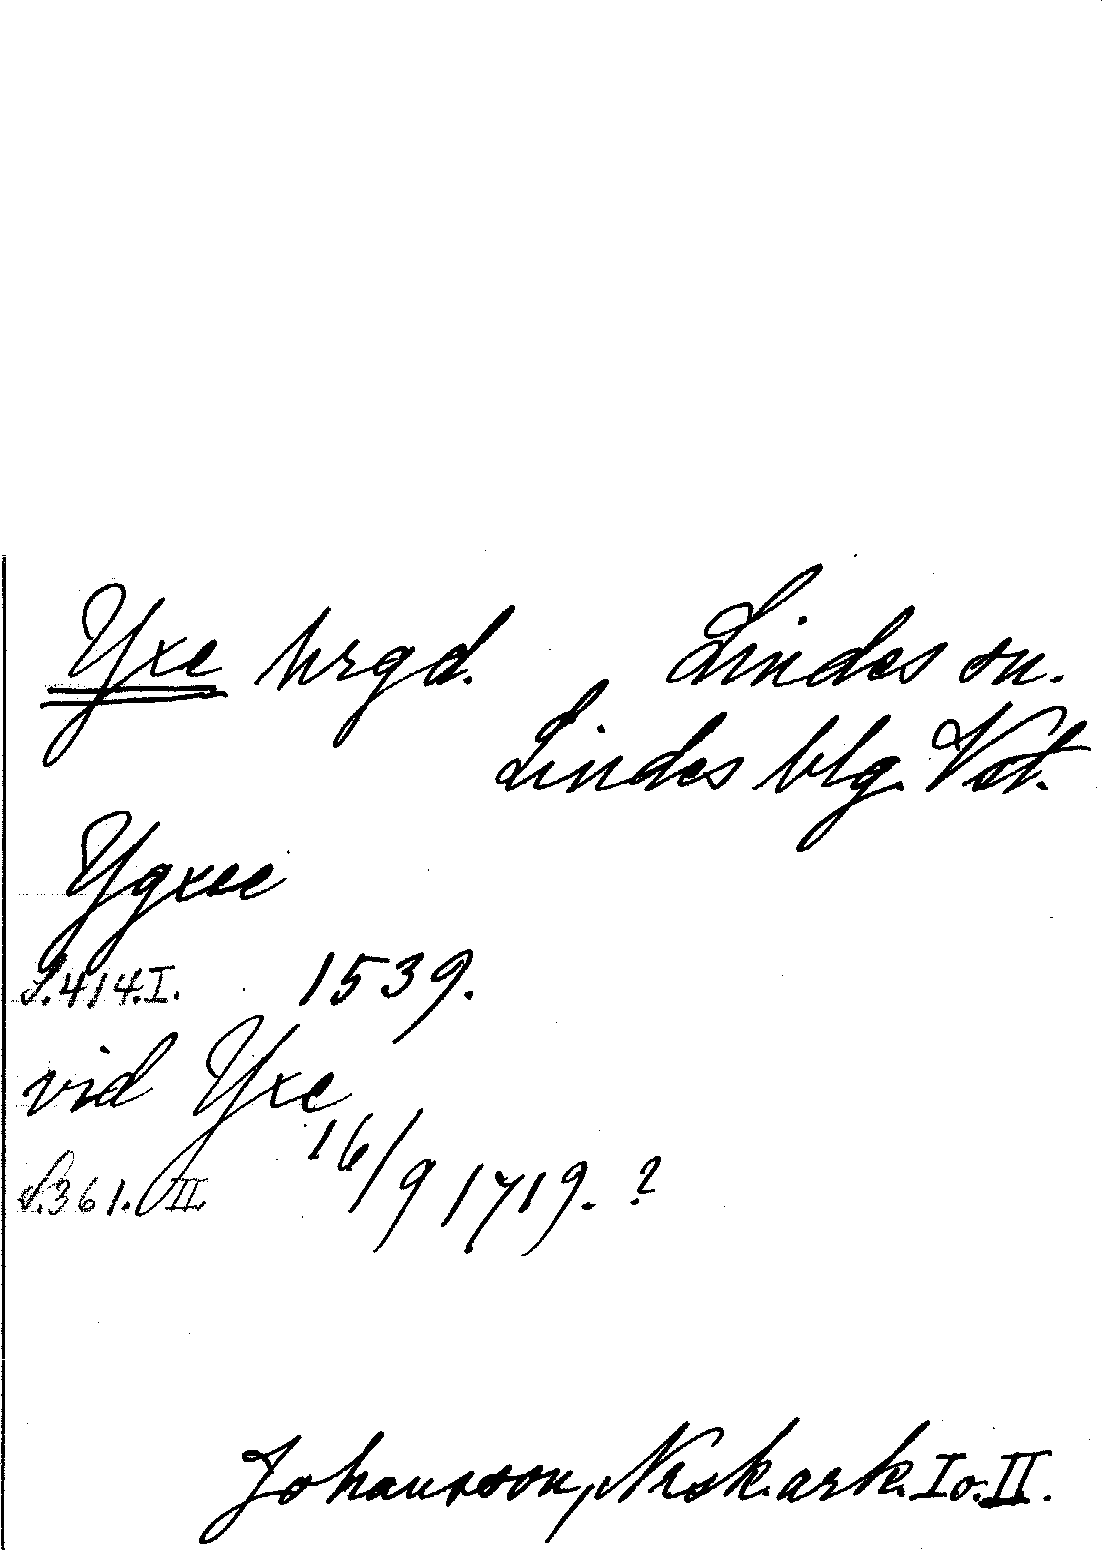 Yxe hrgd. Lindes sn.
Lindes blg. Vstm.
Ygxee
S. 414. I. 1539.
vid Yxe
S. 361. III. 16/9 1719. ?
Johansson, Norsk. ark. I o. II.